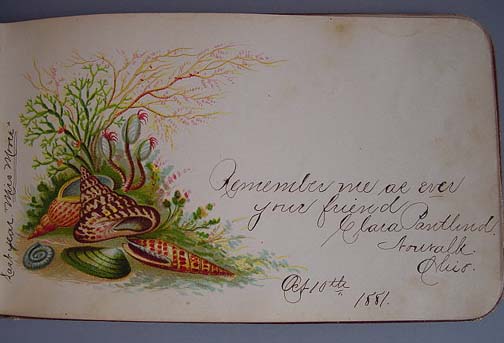 Remember me as ever
your friend
Clara Pantlind.
Norwalk
Ohio.
Oct 10th
1881.
Last year "Miss Moore"